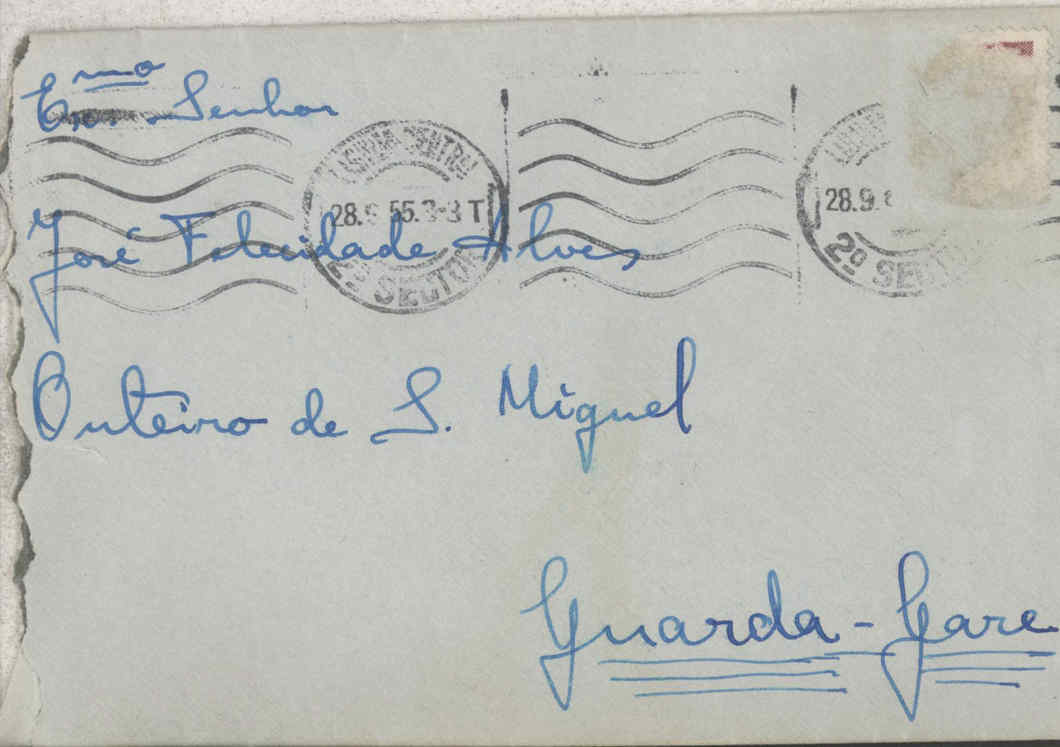 Exmo Senhor
LISBOA CENTRAL
28.9.55.3-8 T
2º SECTOR
28.9.
2º SECTO
José Felicidade Alves
Outeiro de S. Miguel
Guarda-Gare